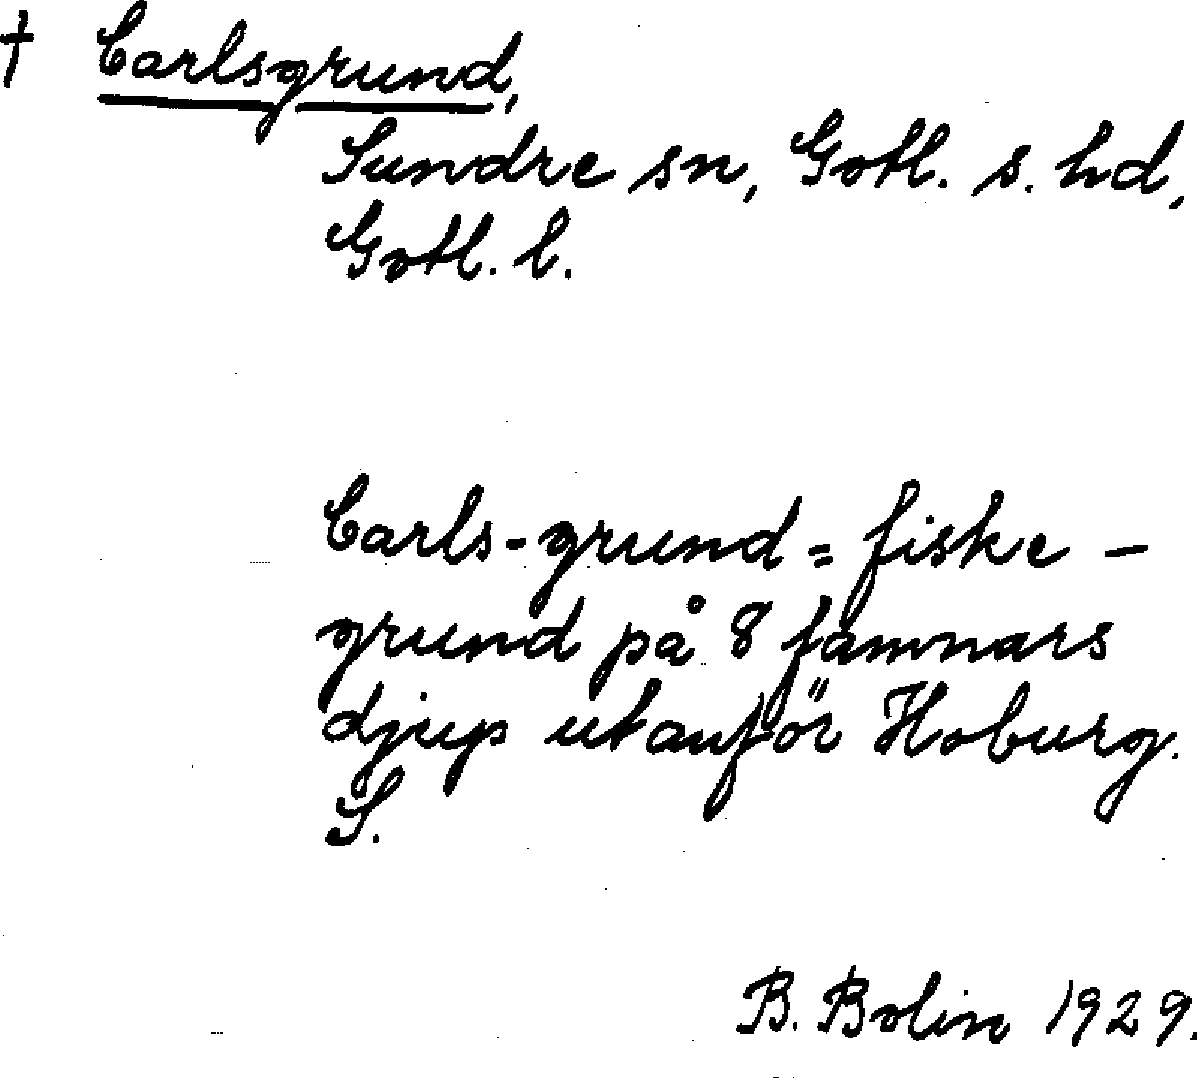 † Carlsgrund,
Sundre sn, Gotl. s. hd,
Gotl. l.
Carls-grund = fiske-
grund på 8 famnars
djup utanför Hoburg.
S.
B. Bolin 1929.